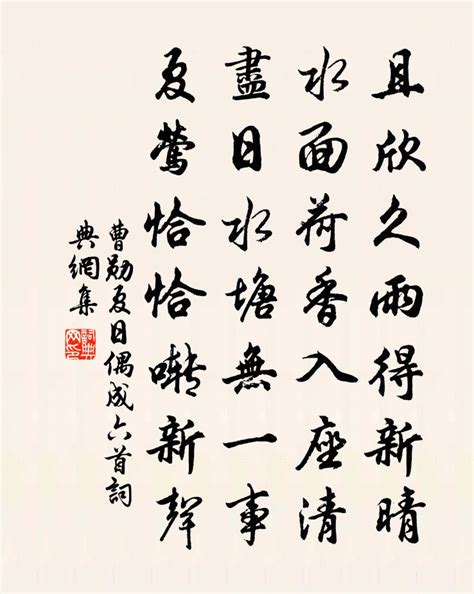 且欣久雨得新晴
水面荷香入座清
盡日水塘無一事
夏鶯恰恰囀新聲
曹勛夏日偶成六首詞
典網集
詞典網印